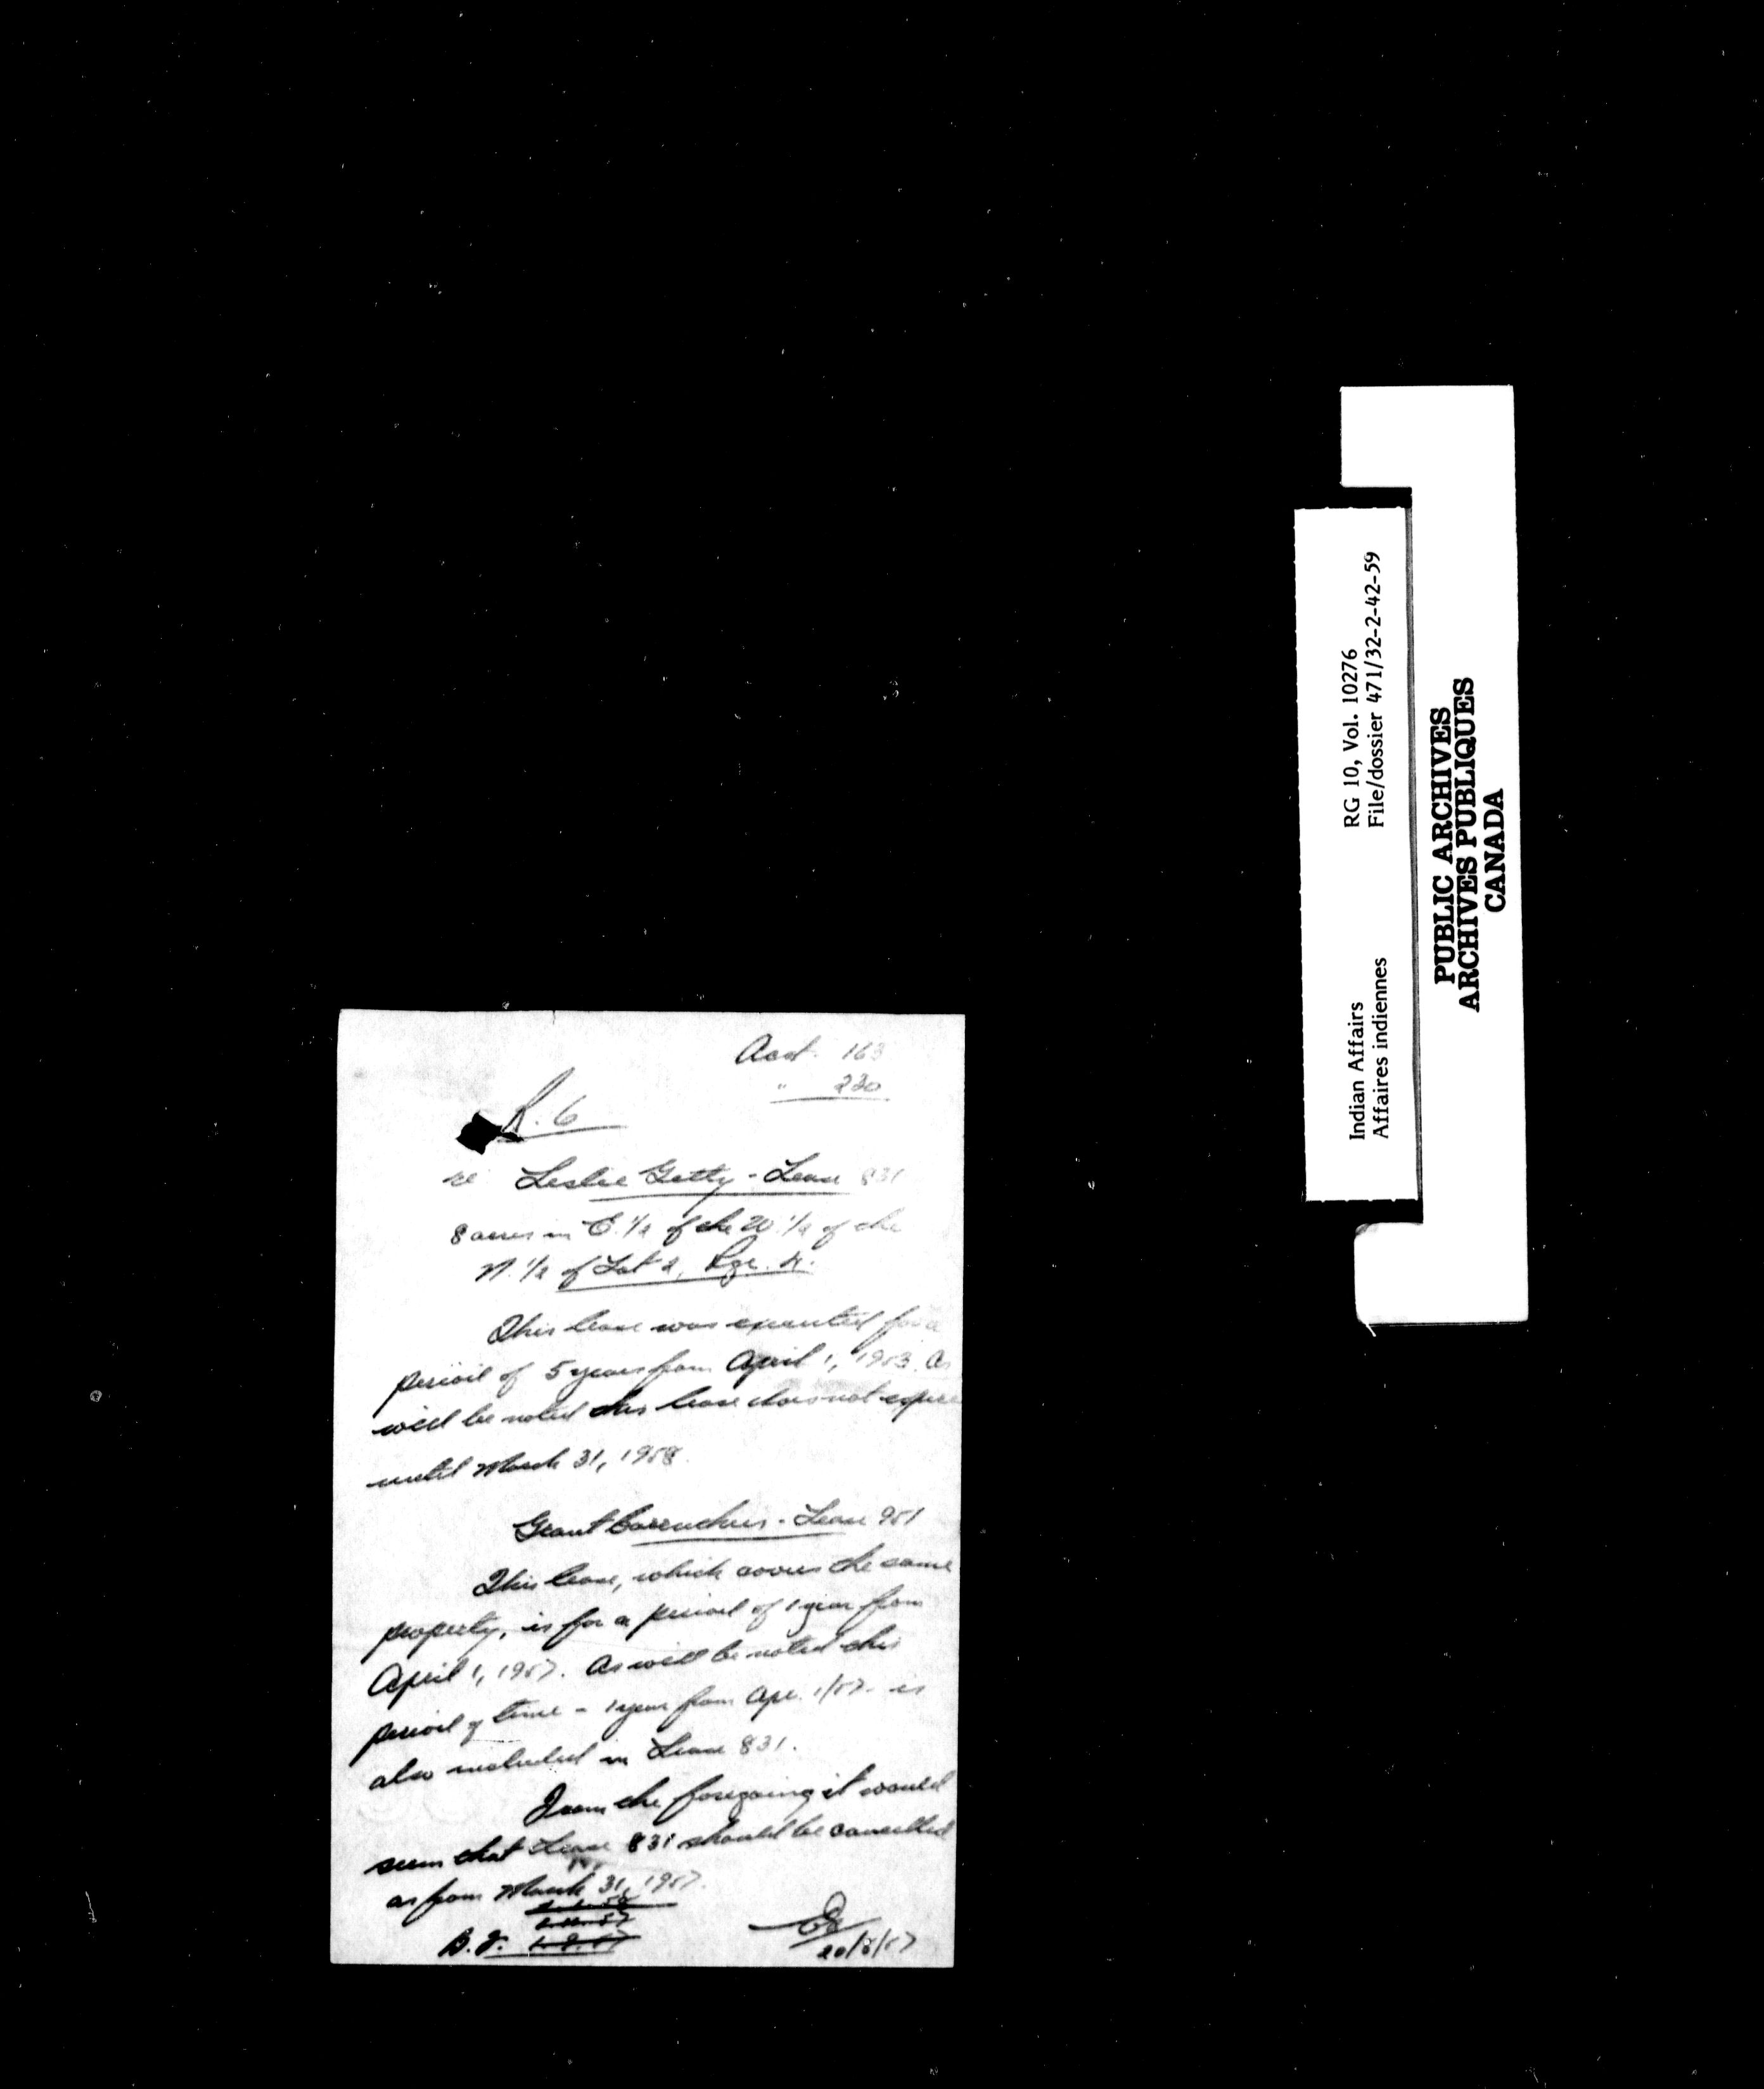 Acct. 163
" 230
R. 6
re Leslie Getty - Lease 831
8 acres in E. 1/2 of the W. 1/2 of the
N. 1/2 of Lot 2, Rge. 4.
This lease was executed for a
period of 5 years from April 1, 1953. As
will be noted this lease does not expire
until March 31, 1958.
Grant - Lease 951
This lease, which covers the same
property, is for a period of 1 year from
April 1, 1957. As will be noted this
period of time - 1 year from Apr. 1/57 - is
also included in Lease 831.
From the foregoing it would
seem that Lease 831 should be cancelled
as from March 31, 1957.
B.F.
20/8/57
Indian Affairs RG 10, Vol. 10276
Affaires indiennes File/dossier 471/32-2-42-59
PUBLIC ARCHIVES
ARCHIVES PUBLIQUES
CANADA